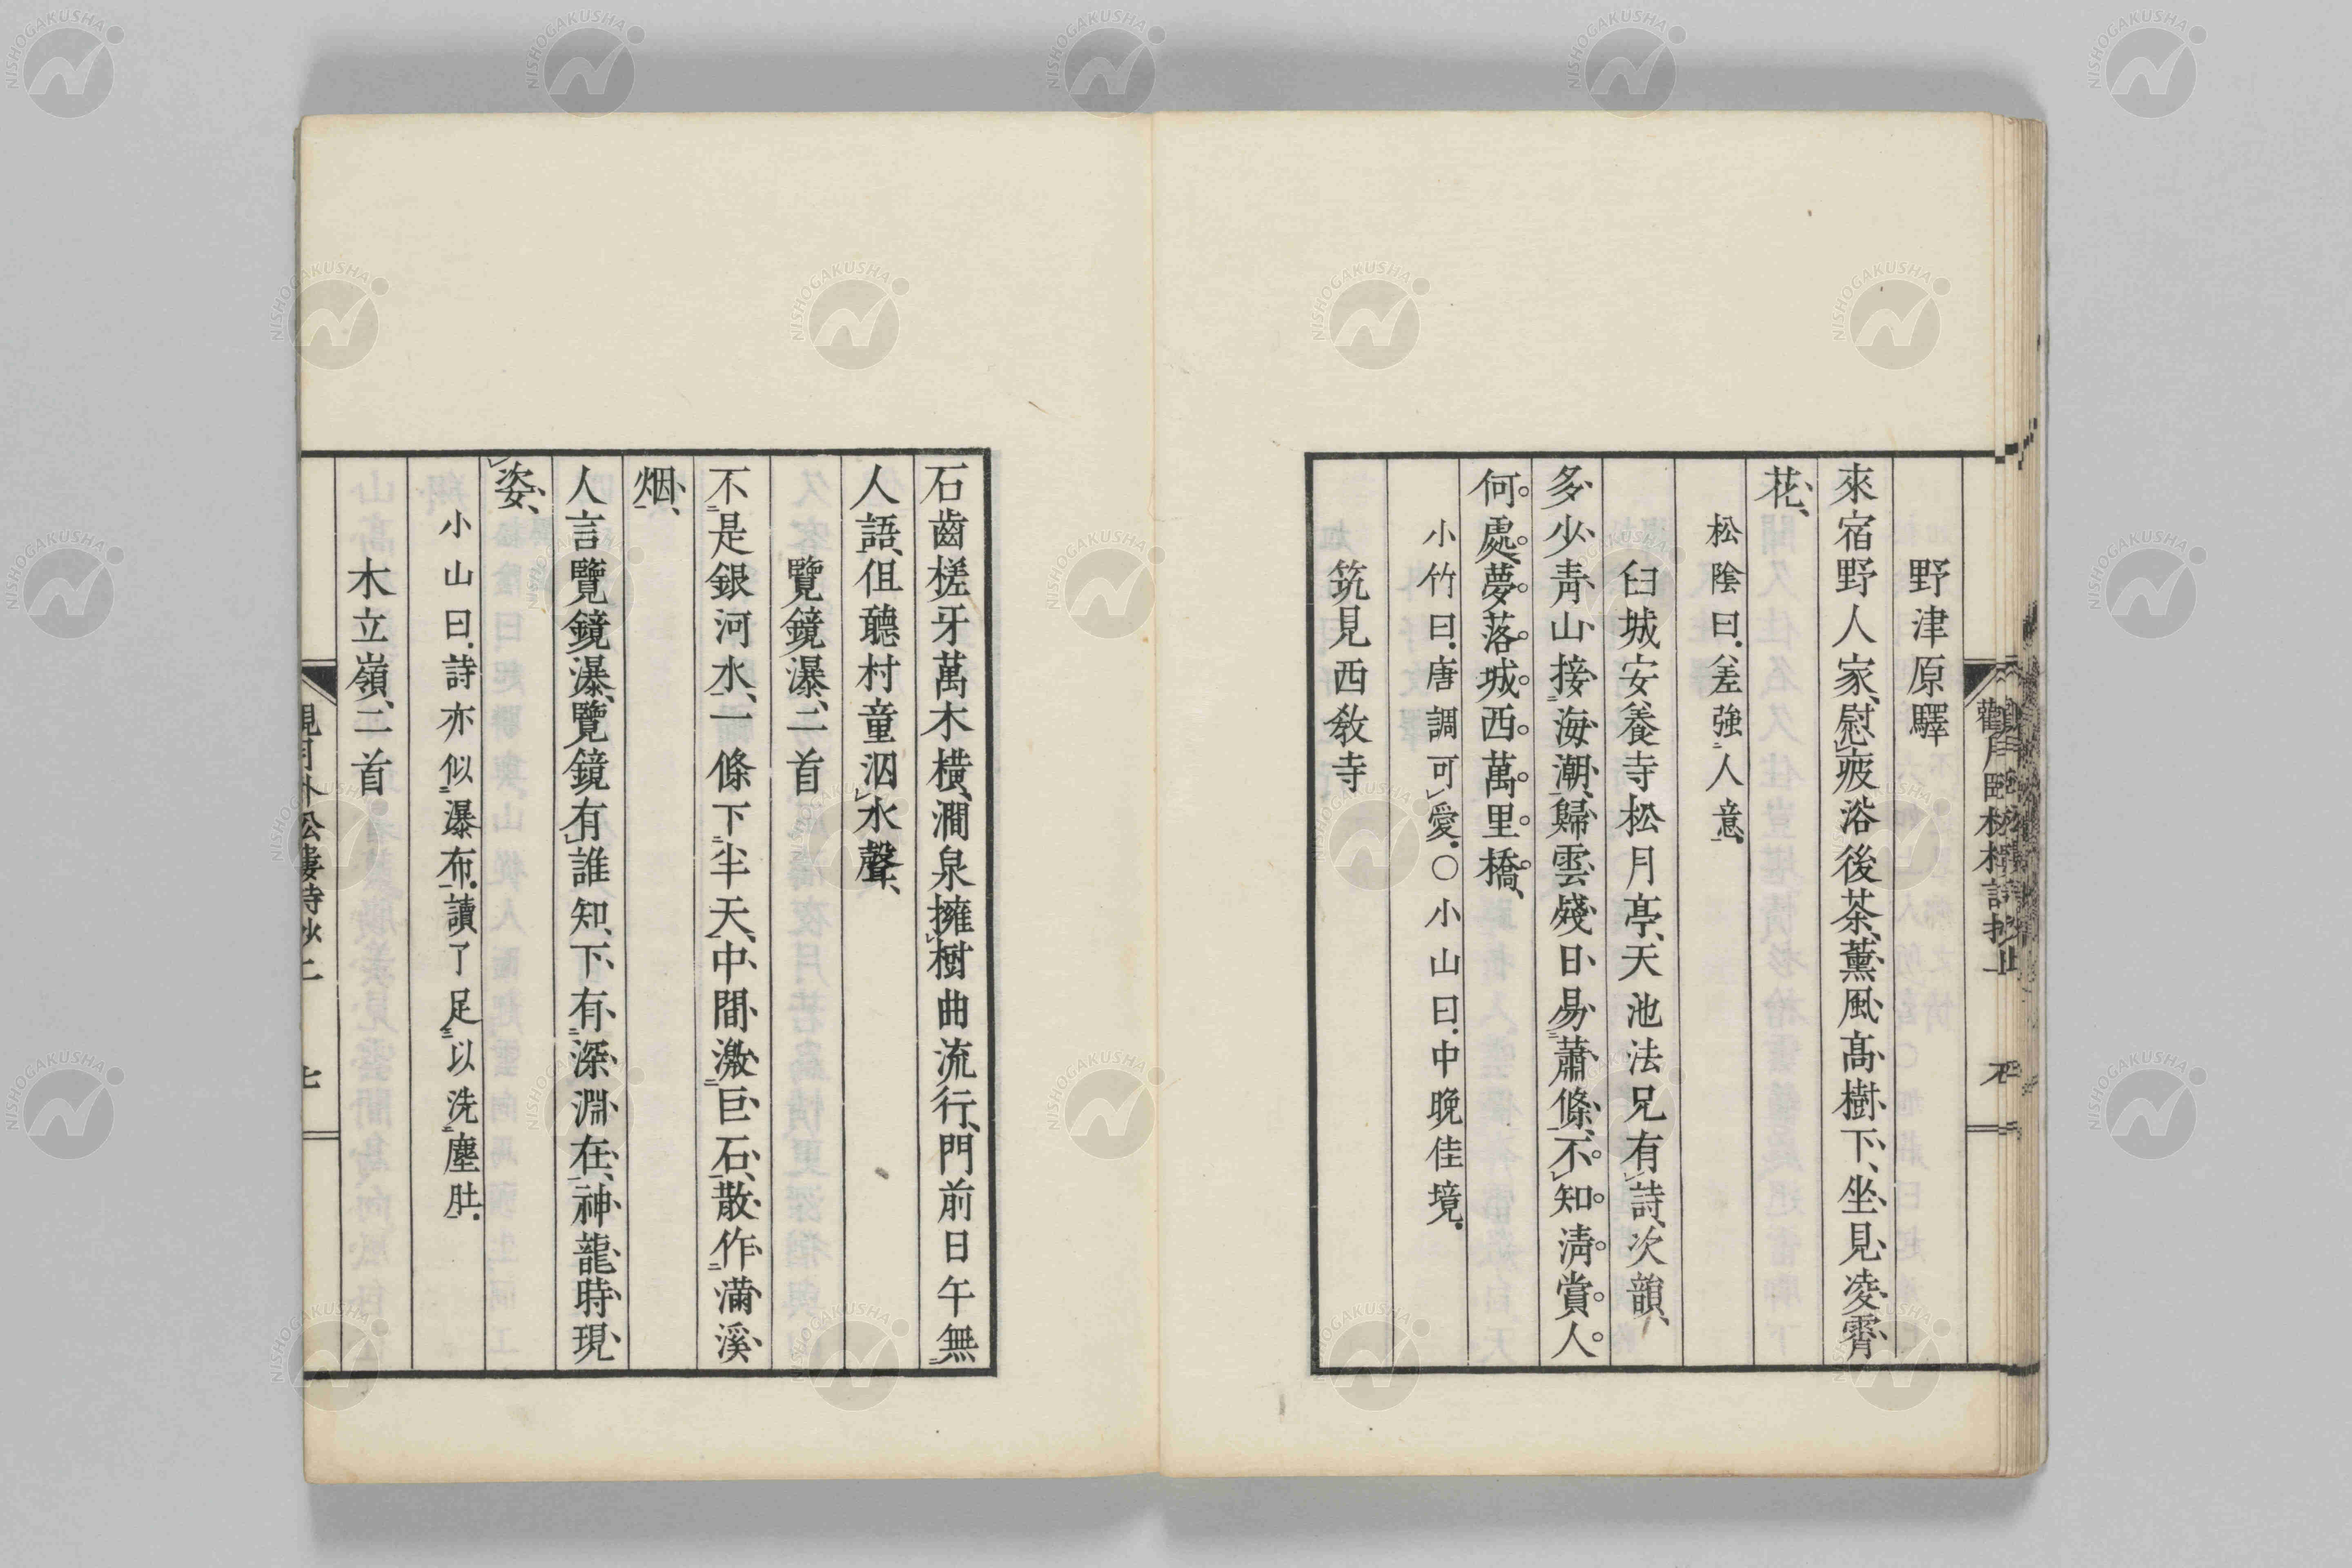 野津原驛
來宿野人家、慰疲浴後茶、薰風高樹下、坐見凌霄
花、
松陰曰.差強人意、
臼城安養寺松月亭、天池法兄有詩、次韻、
多少靑山接海潮、歸雲殘日易蕭條、不知淸賞人
何處、夢落城西萬里橋、
小竹曰.唐調可愛.○小山曰.中晚佳境.
筑見西敎寺
石齒槎牙萬木橫、澗泉擁樹曲流行、門前日午無
人語、但聽村童泅水聲、
覽鏡瀑、二首
不是銀河水、一條下半天、中間激巨石、散作滿溪
烟、
人言覽鏡瀑、覽鏡有誰知、下有深淵在、神龍時現
姿、
小山曰.詩亦似瀑布.讀了足以洗塵肚.
木立嶺、二首
NISHOGAKUSHA